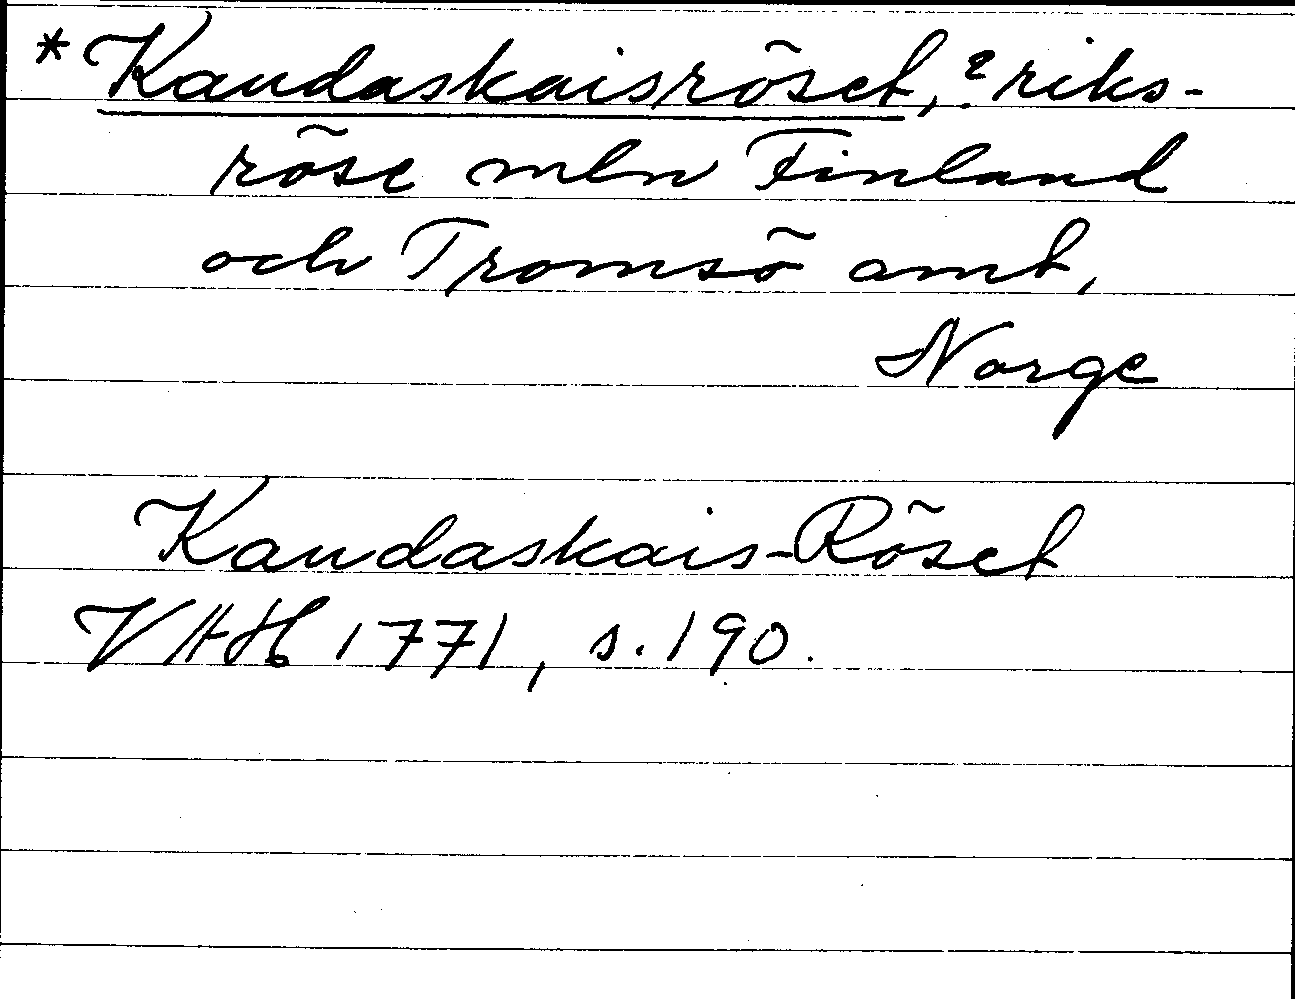 * Kaudaskaisröset, ? riks-
röse mln Finland
och Tromsö amt,
Norge
Kaudaskais-Röset
VHH 1771, s. 190.